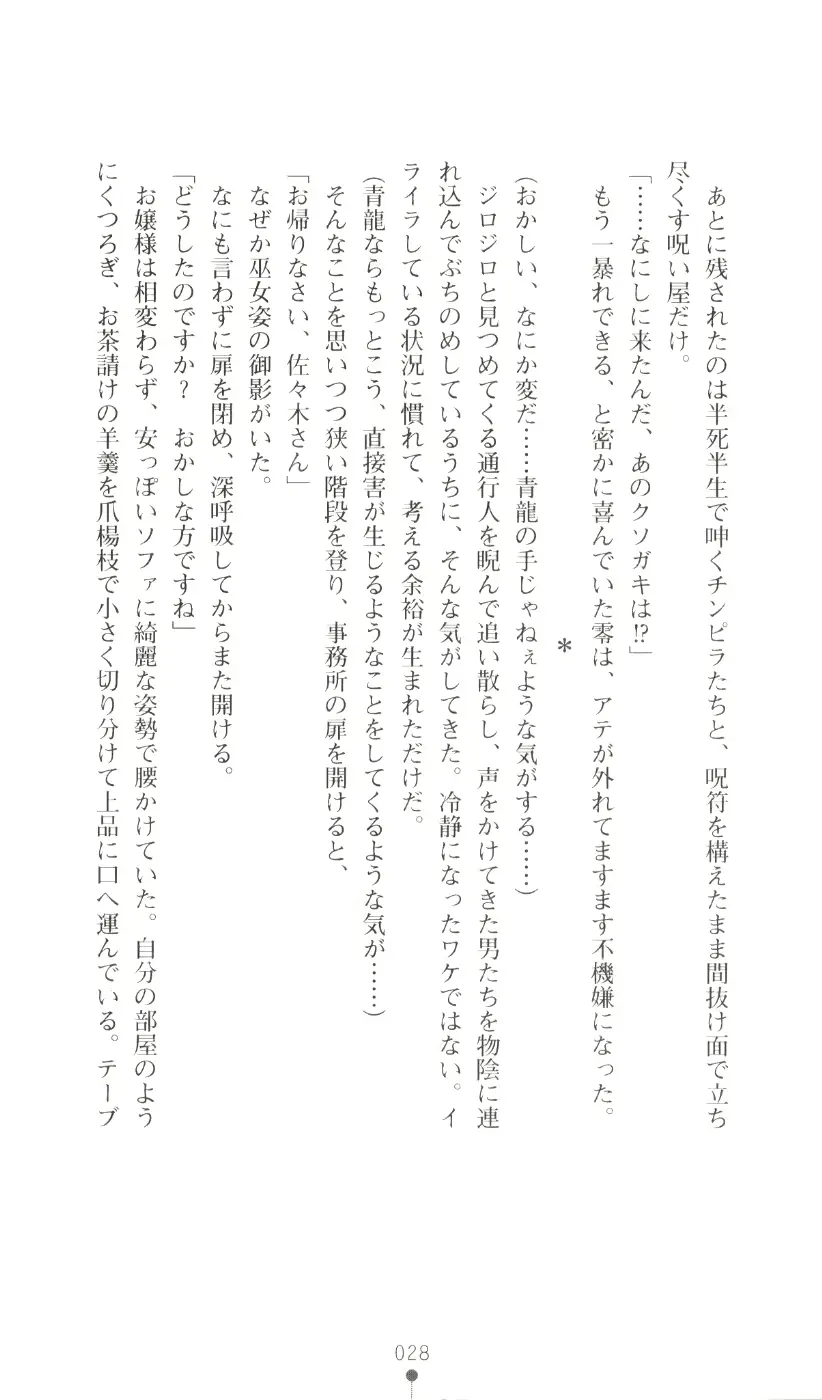 あとに残されたのは半死半生で呻くチンピラたちと、呪符を構えたまま間抜け面で立ち
尽くす呪い屋だけ。
「……なにしに来たんだ、あのクソガキは!?」
もう一暴れできる、と密かに喜んでいた零は、アテが外れてますます不機嫌になった。
＊
(おかしい、なにか変だ……青龍の手じゃねぇような気がする……)
ジロジロと見つめてくる通行人を睨んで追い散らし、声をかけてきた男たちを物陰に連
れ込んでぶちのめしているうちに、そんな気がしてきた。冷静になったワケではない。イ
ライラしている状況に慣れて、考える余裕が生まれただけだ。
(青龍ならもっとこう、直接害が生じるようなことをしてくるような気が……)
そんなことを思いつつ狭い階段を登り、事務所の扉を開けると、
「お帰りなさい、佐々木さん」
なぜか巫女姿の御影がいた。
なにも言わずに扉を閉め、深呼吸してからまた開ける。
「どうしたのですか？　おかしな方ですね」
お嬢様は相変わらず、安っぽいソファに綺麗な姿勢で腰かけていた。自分の部屋のよう
にくつろぎ、お茶請けの羊羹を爪楊枝で小さく切り分けて上品に口へ運んでいる。テーブ
028